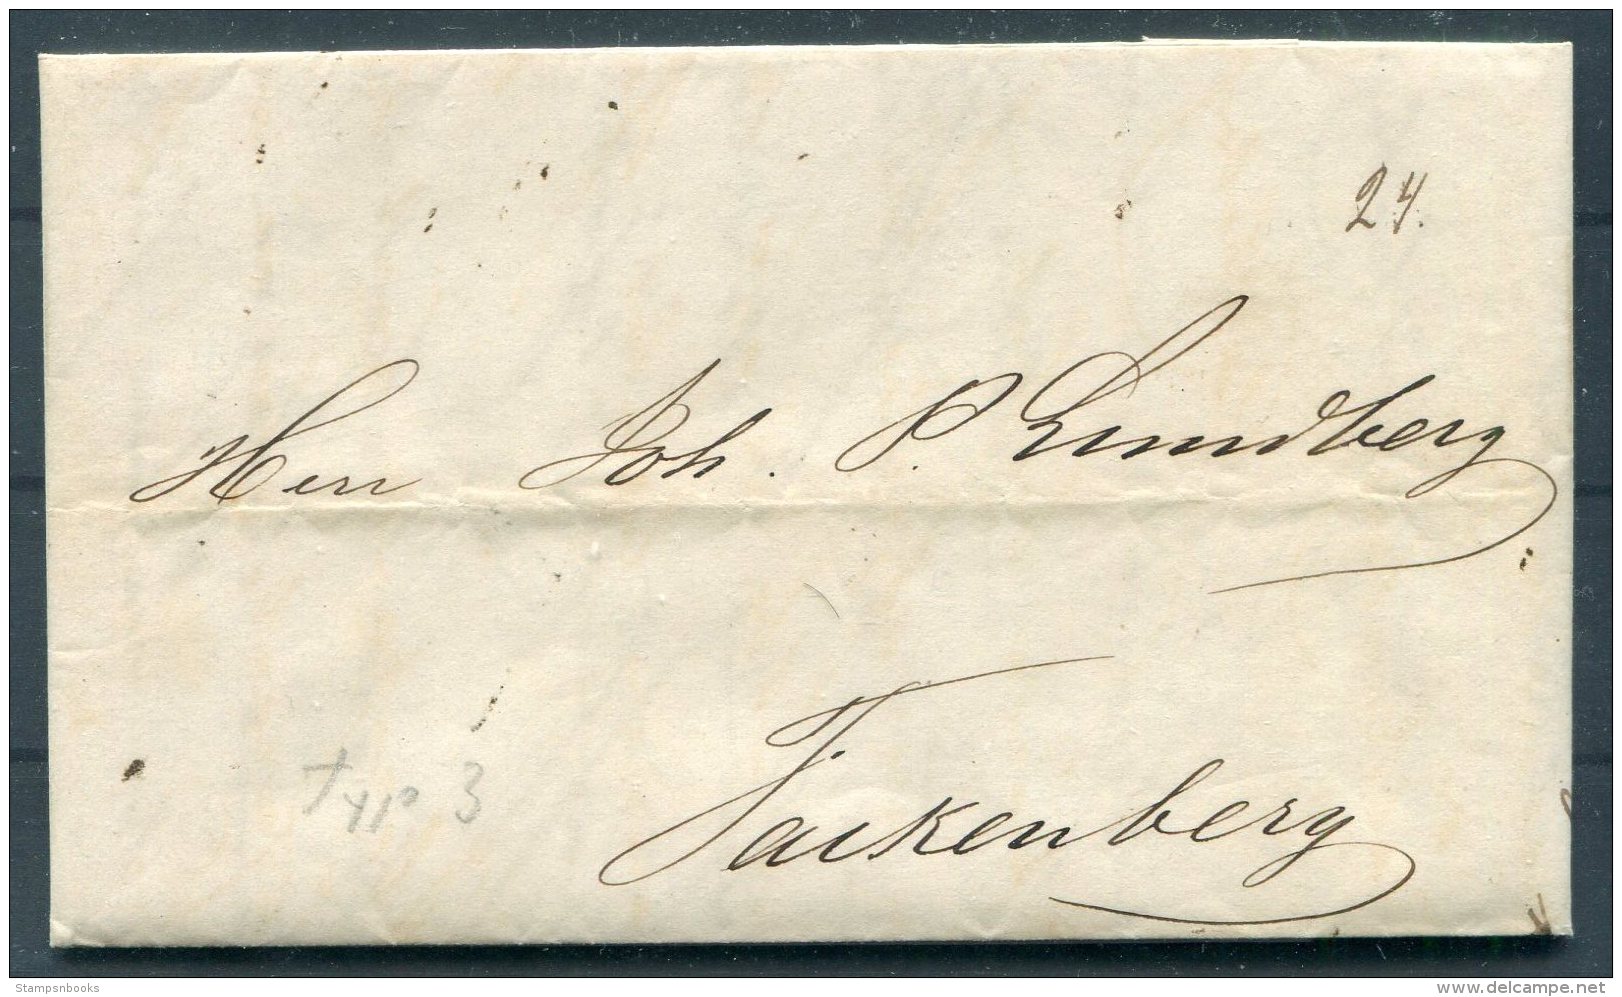 24.
Herr Joh. P. Lundberg
Falkenberg
Typ 3
Stampsnbooks
delcampe.net